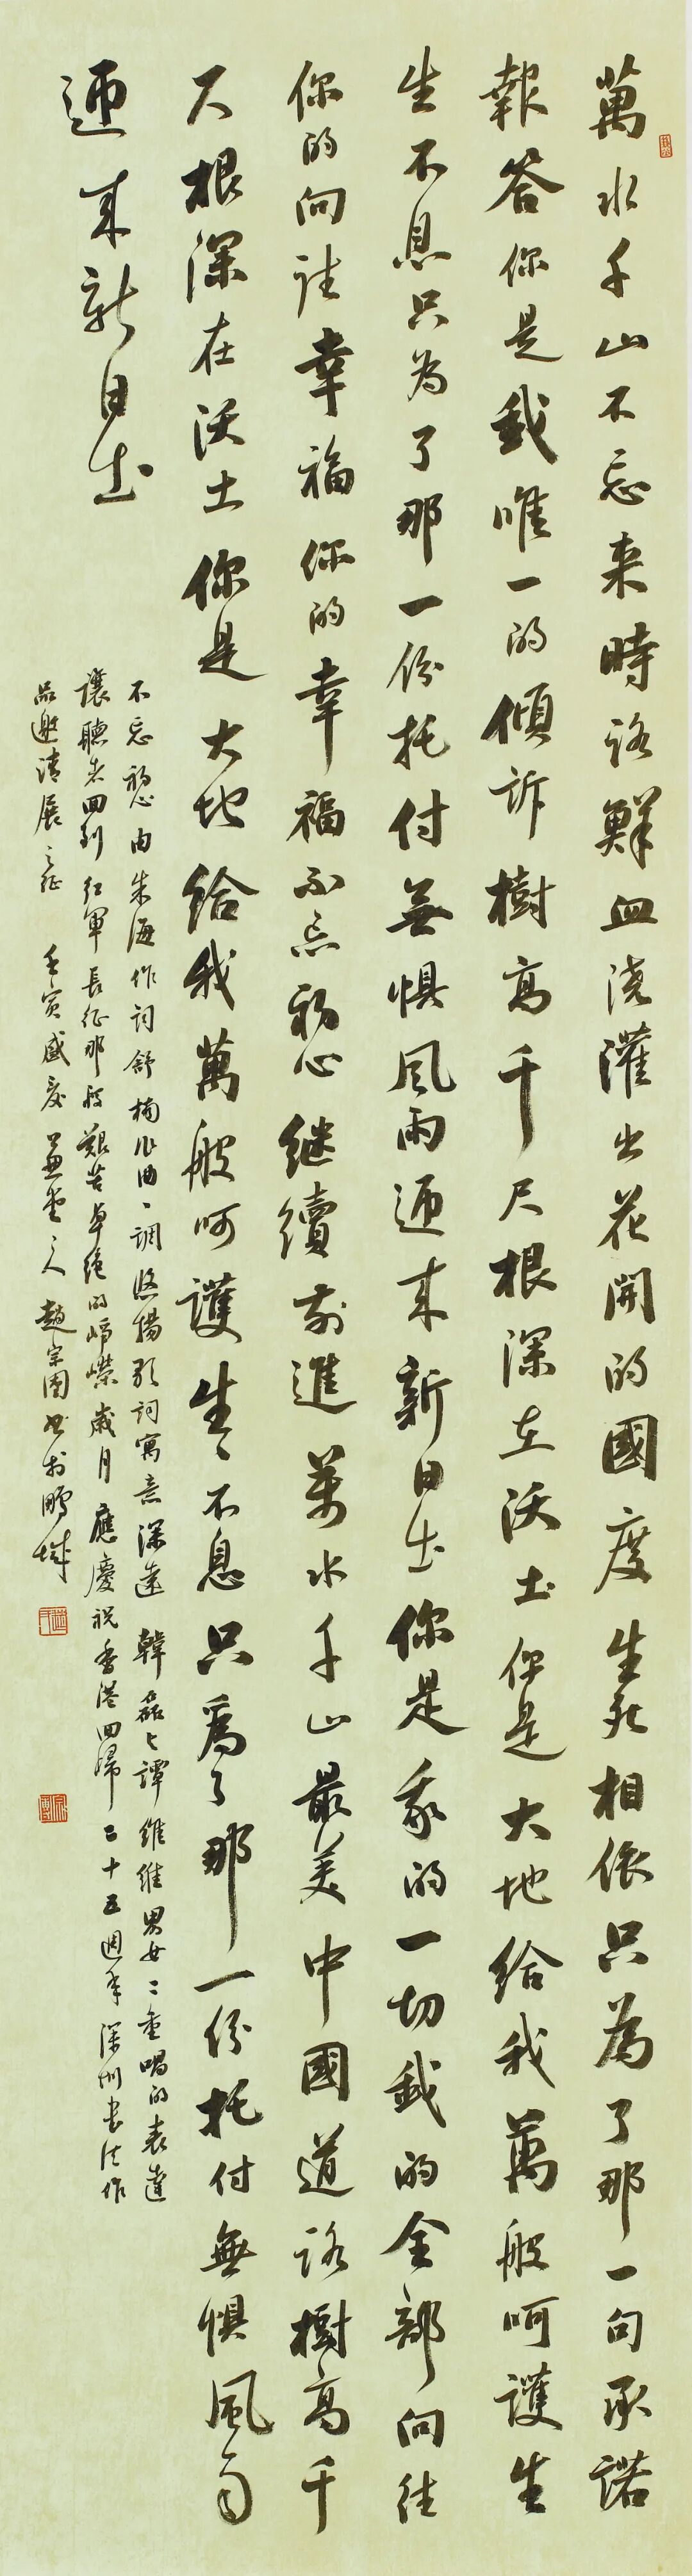 萬水千山不忘来時路鮮血浇灌出花開的國度生死相依只為了那一句承諾
報答你是我唯一的傾訴樹高千尺根深在沃土你是大地給我萬般呵護生
生不息只为了那一份托付無惧风雨迎来新日出你是我的一切我的全部向往
你的向往幸福你的幸福不忘初心继續前進萬水千山最美中國道路樹高千
尺根深在沃土你是大地給我萬般呵護生生不息只爲了那一份托付無惧風雨
迎来新日出
不忘初心由朱海作词舒楠作曲曲調悠揚歌词寓意深遠韓磊与譚維維男女二重唱的表達
讓聽者回到红軍長征那段艱苦卓绝的崢嶸歲月應慶祝香港回歸二十五週年深圳书法作
品邀请展之征 壬寅盛夏 趙宗國书於鵬城